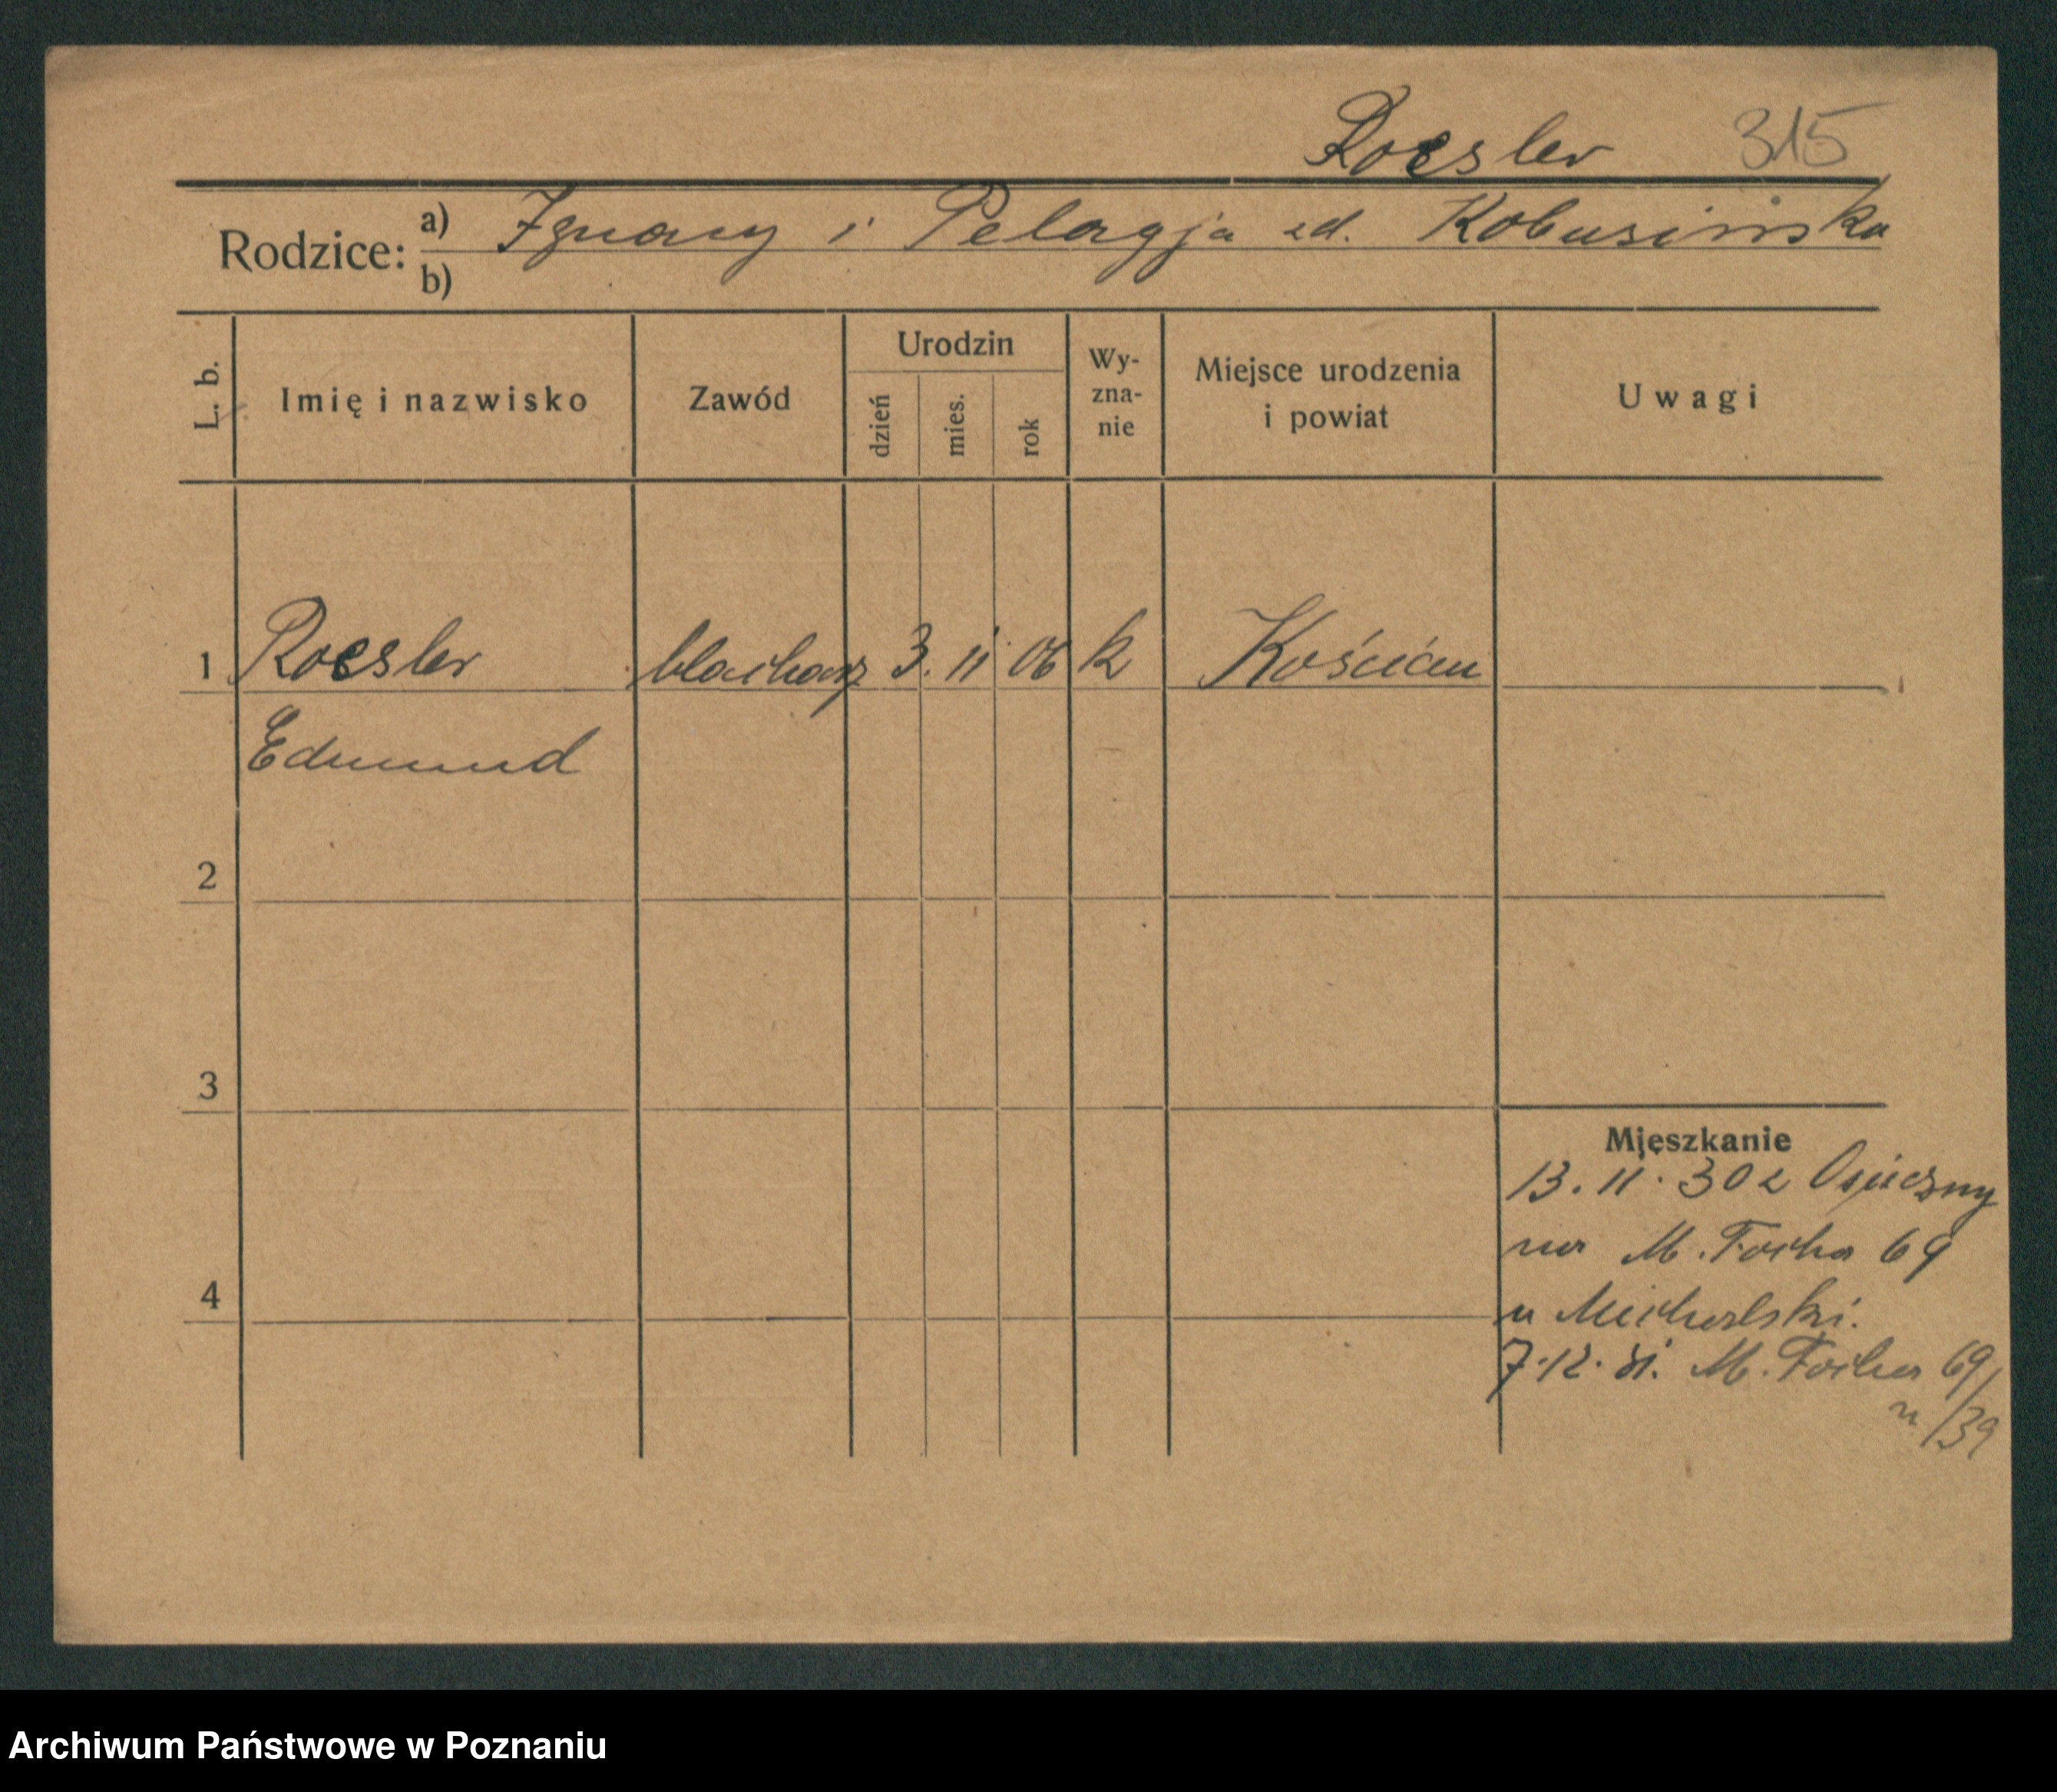 Roesler 315
Rodzice: a) Ignacy i Pelagja zd. Kobusińska
b)
L. b. Imię i nazwisko Zawód Urodzin dzień mies. rok Wy-zna-nie Miejsce urodzenia i powiat Uwagi
1 Roesler blacharz 3. 11 06 k Kościan
Edmund
2
3
Mieszkanie
13. 11. 30 z Osieczny
na M. Focha 69
4
u Michalski.
7.12.31. M. Focha 69/
u /39
Archiwum Państwowe w Poznaniu